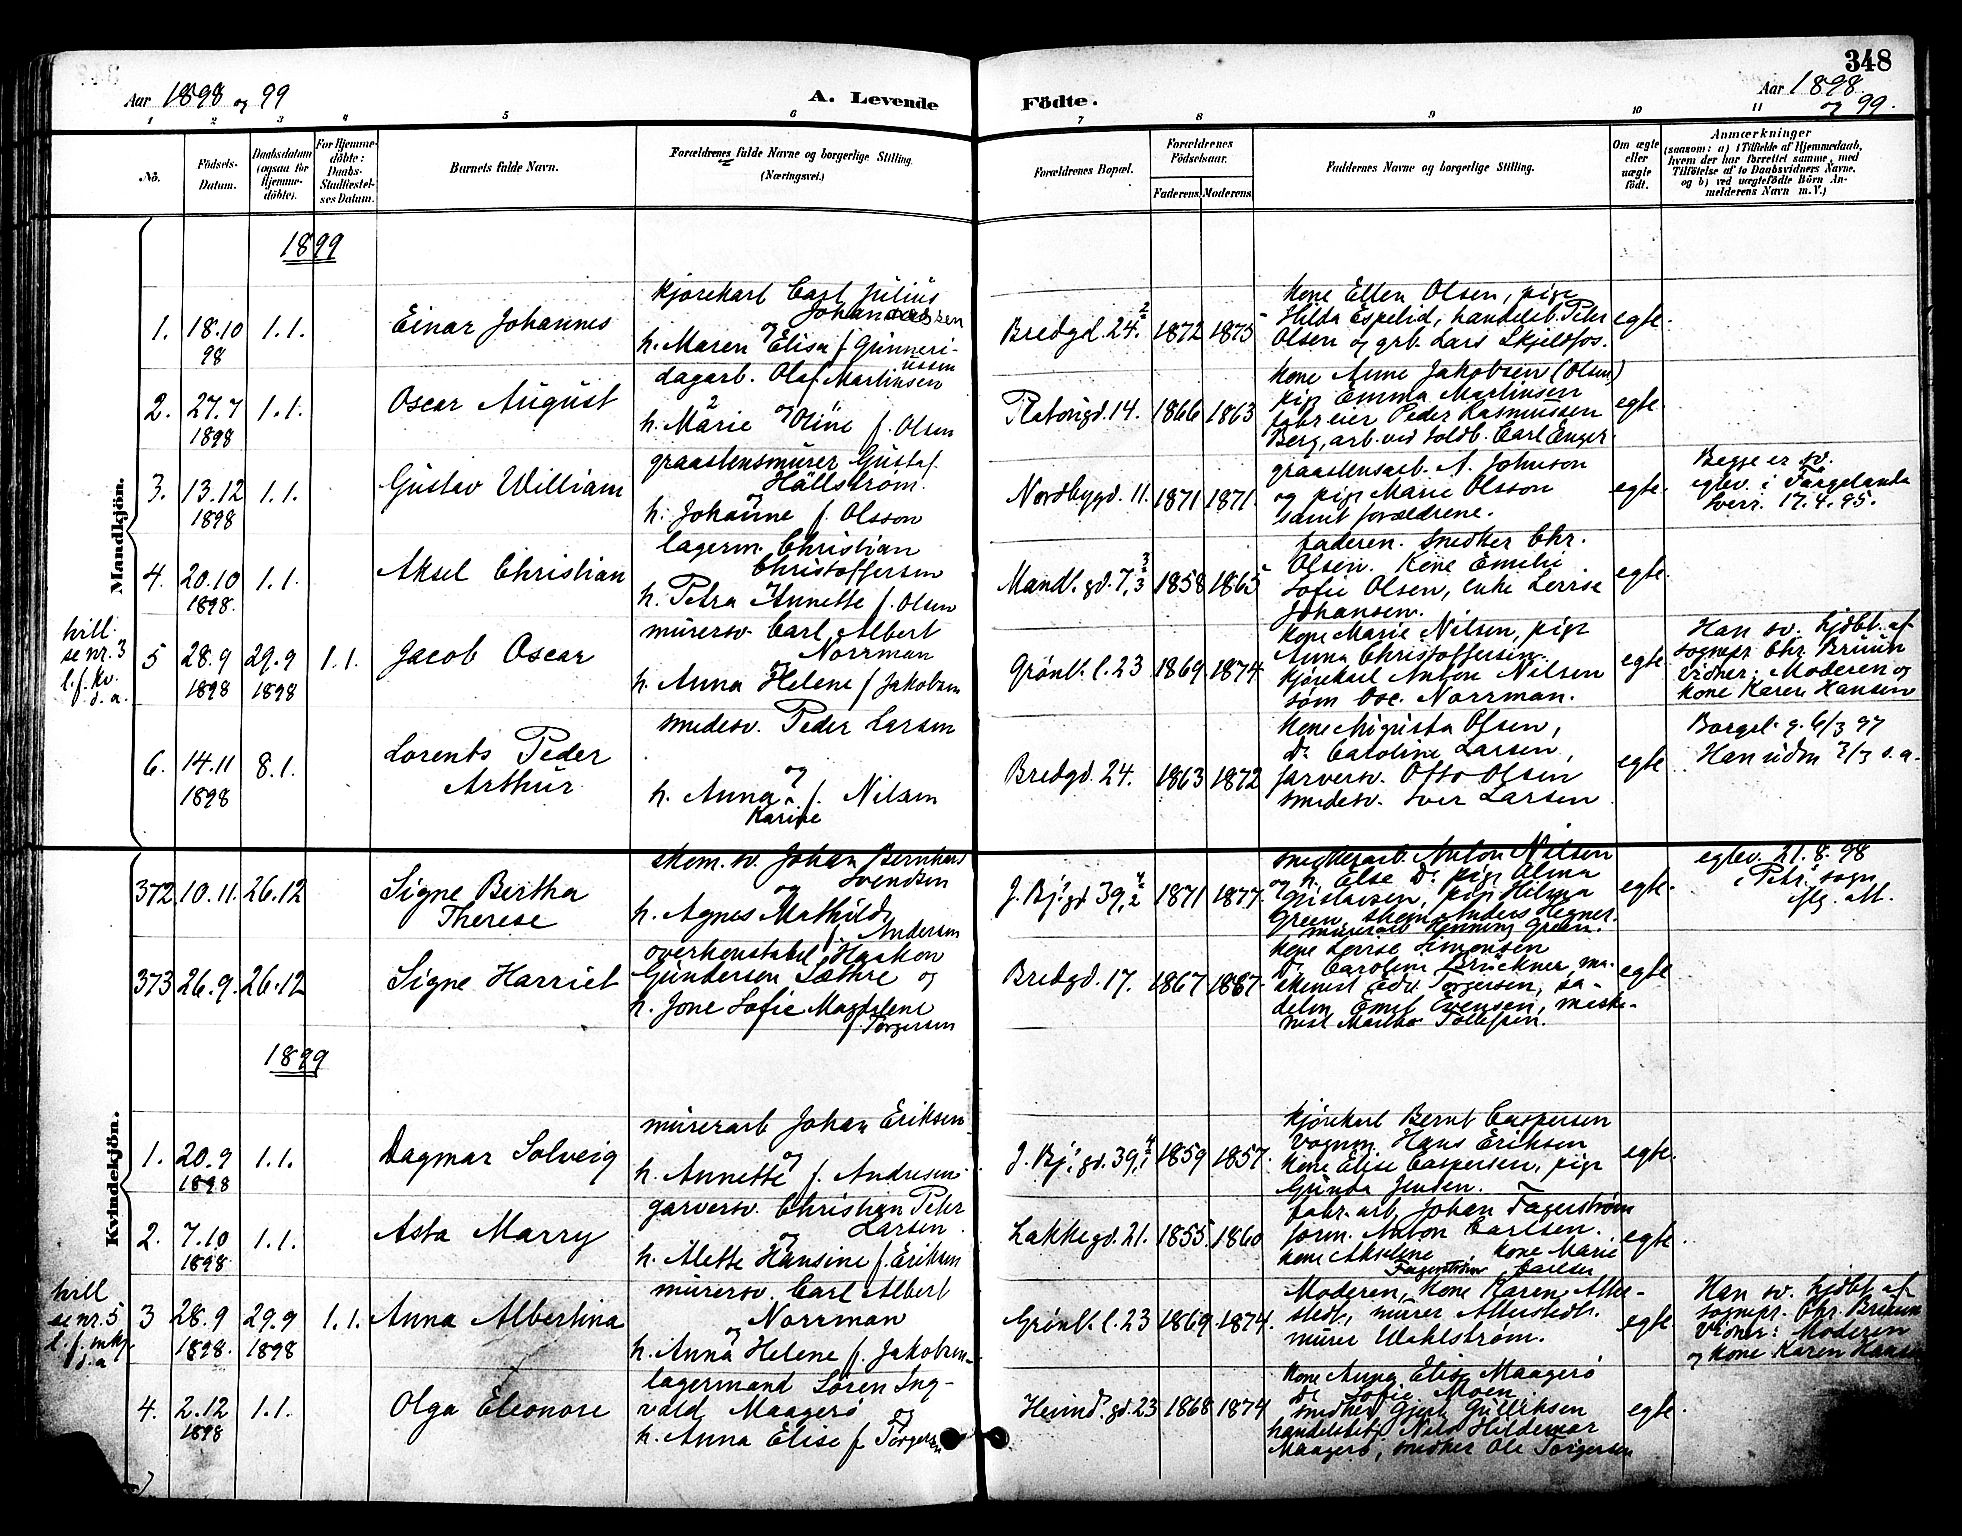 348
Aar 1898 og 99
A. Levende Födte.
Aar 1898 og 99.
1 2 3 4 5 6 7 8 9 10 11
No.
Födsels-Datum.
Daabsdatum (ogsaa for Hjemme-döbte).
For Hjemme-döbte: Daabs-Stadfæstel-ses Datum.
Barnets fulde Navn.
Forældrenes fulde Navne og borgerlige Stilling.
(Næringsvei.)
Forældrenes Bopæl.
Forældrenes Födselsaar.
Faderens Moderens
Faddernes Navne og borgerlige Stilling.
Om ægte eller uægte födt.
Anmærkninger
(saasom: a) i Tilfælde af Hjemmedaab, hvem der har forrettet samme, med Tilföielse af to Daabsvidners Navne, og b) ved uægtefödte Börn An-melderens Navn m. V.)
Mandkjön.
1899
1. 18.10 98 1.1. Einar Johannes
kjørekarl Carl Julius
Johannessen
og
h. Maren Elisa f. Gunneri-
ussen
Bredgd. 24. 2 1872 1875
Kone Ellen Olsen, pige
Hilda Espelid, handelsb. Peter
Olsen og grb. Lars Skjeldfos.
egte.
2. 27.7 1898 1.1. Oscar August
dagarb. Olaf Martinsen
og
h. Marie Oline f. Olsen
Platougd. 14. 1866 1863
Kone Anne Jakobsen (Olsen)
pige Emma Martinsen
fabr.eier Peder Rasmussen
Berg, arb. ved toldb. Carl Enger.
egte.
3. 13.12 1898 1.1. Gustav William
graastensmurer Gustaf
Hällström
og
h. Johanne f. Olsson
Nordbygd. 11. 1871 1871.
graastensarb. A. Johnson
og pige Marie Olsson
samt forældrene.
egte.
Begge er sv.
egtev. i Färgelanda
Sverr. 17.4.95.
4. 20.10 1898. 1.1. Aksel Christian
lagerm. Christian
Christoffersen
og
h. Petra Annette f. Olsen
Mandl. gd. 7, 3 3 1858 1865
faderen. snedker Chr.
Olsen. Kone Emilie
Sofie Olsen, enke Lovise
Johansen.
egte.
tvill.
se nr. 3
l. f. kv.
d. a.
5 28.9 1898 29.9 1898 1.1. Jacob Oscar
murersv. Carl Albert
Norrman
og
h. Anna Helene f. Jakobsen
Grønl. l. 23 1869 1874.
Kone Marie Nilsen, pige
Anna Christoffersen.
kjørekarl Anton Nilsen
søm Osc. Norrman.
egte.
Han sv. hjdbt. af
sognepr. Chr. Bruun
vidner: Moderen og
kone Karen Hansen
6. 14.11 1898 8.1. Lorents Peder
Arthur
smedesv. Peder Larsen
og
h. Anna f. Nilsen
Karine
Bredgd. 24. 1863 1872
Kone Augusta Olsen,
Do. Caroline Larsen,
farversv. Otto Olsen
smedesv. Iver Larsen
egte
Borgel. g. 6/3 97
Han udm 3/3 s. a.
Kvindekjön.
372 10.11. 26.12 Signe Bertha
Therese
skom. sv. Johan Bernhard
Svendsen
og
h. Agnes Mathilde
f. Andersen
J. Bj. gd 39, 2 4 1871 1877.
snedkerarb. Anton Nilsen
og h. Else Do. pige Alma
Gustavsen, pige Hilma
Green, skom. Anders Hegner.
murerarb. Henning Green.
egte.
egtev. 21.8.98
i Petri sogn
flg. att.
373 26.9. 26.12 Signe Harriet
overkonstabel Haakon
Gundersen Sæthre og
h. Jone Sofie Magdalene
f. Torgersen
Bredgd. 17. 1867 1867.
Kone Lovise Simonsen
Do. Caroline Bruckner, ma-
skinist Edv. Torgersen, sa-
delm. Emil Evensen, maski-
nist Mathæ Tollefsen.
egte
1899
1. 20.9 1898 1.1. Dagmar Solveig
murerarb Johan Eriksen
og
h. Annette f. Andresen
J. Bj. gd. 39, 1 4 1859 1857.
kjørekarl Bernt Caspersen
vognm. Hans Eriksen
Kone Elise Caspersen, pige
Gunda Jensen.
egte.
2. 7.10 1898 1.1. Asta Marry
garversv. Christian Peter
Larsen
og
h. Alette Hansine f. Eriksen
Lakkegd. 21. 1855. 1860
fabr. arb. Johan Fagerstrøm
form. Anton Carlsen.
Kone Akseline Fagerstrøm, kone Marie
Carlsen
egte.
tvill
se nr. 5
l. f. mkj.
d. a
3 28.9 1898. 29.9 1898 1.1. Anna Albertina
murersv. Carl Albert
Norrman
og
h. Anna Helene f. Jakobsen
Grønl. l. 23 1869 1874.
Moderen, Kone Karen Alter-
stedt, murer Alterstedt.
murer Wahlstrøm.
egte
Han sv. hjdbt af
sognepr. Chr. Bruun
Vidner: Moderen
og kone Karen Hansen
4. 2.12 1898 1.1. Olga Eleonore
lagermand Søren Ing-
vald Maagerø
og
h. Anna Elise f. Torgersen
Heimd. gd. 23 1868 1874
Kone Anna Elise Maagerø
Do. Sofie Moen
snedker Gjert Gulliksen
handelsbetj. Nils Hildemar
Maagerø, snedker Ole Torgersen
egte.